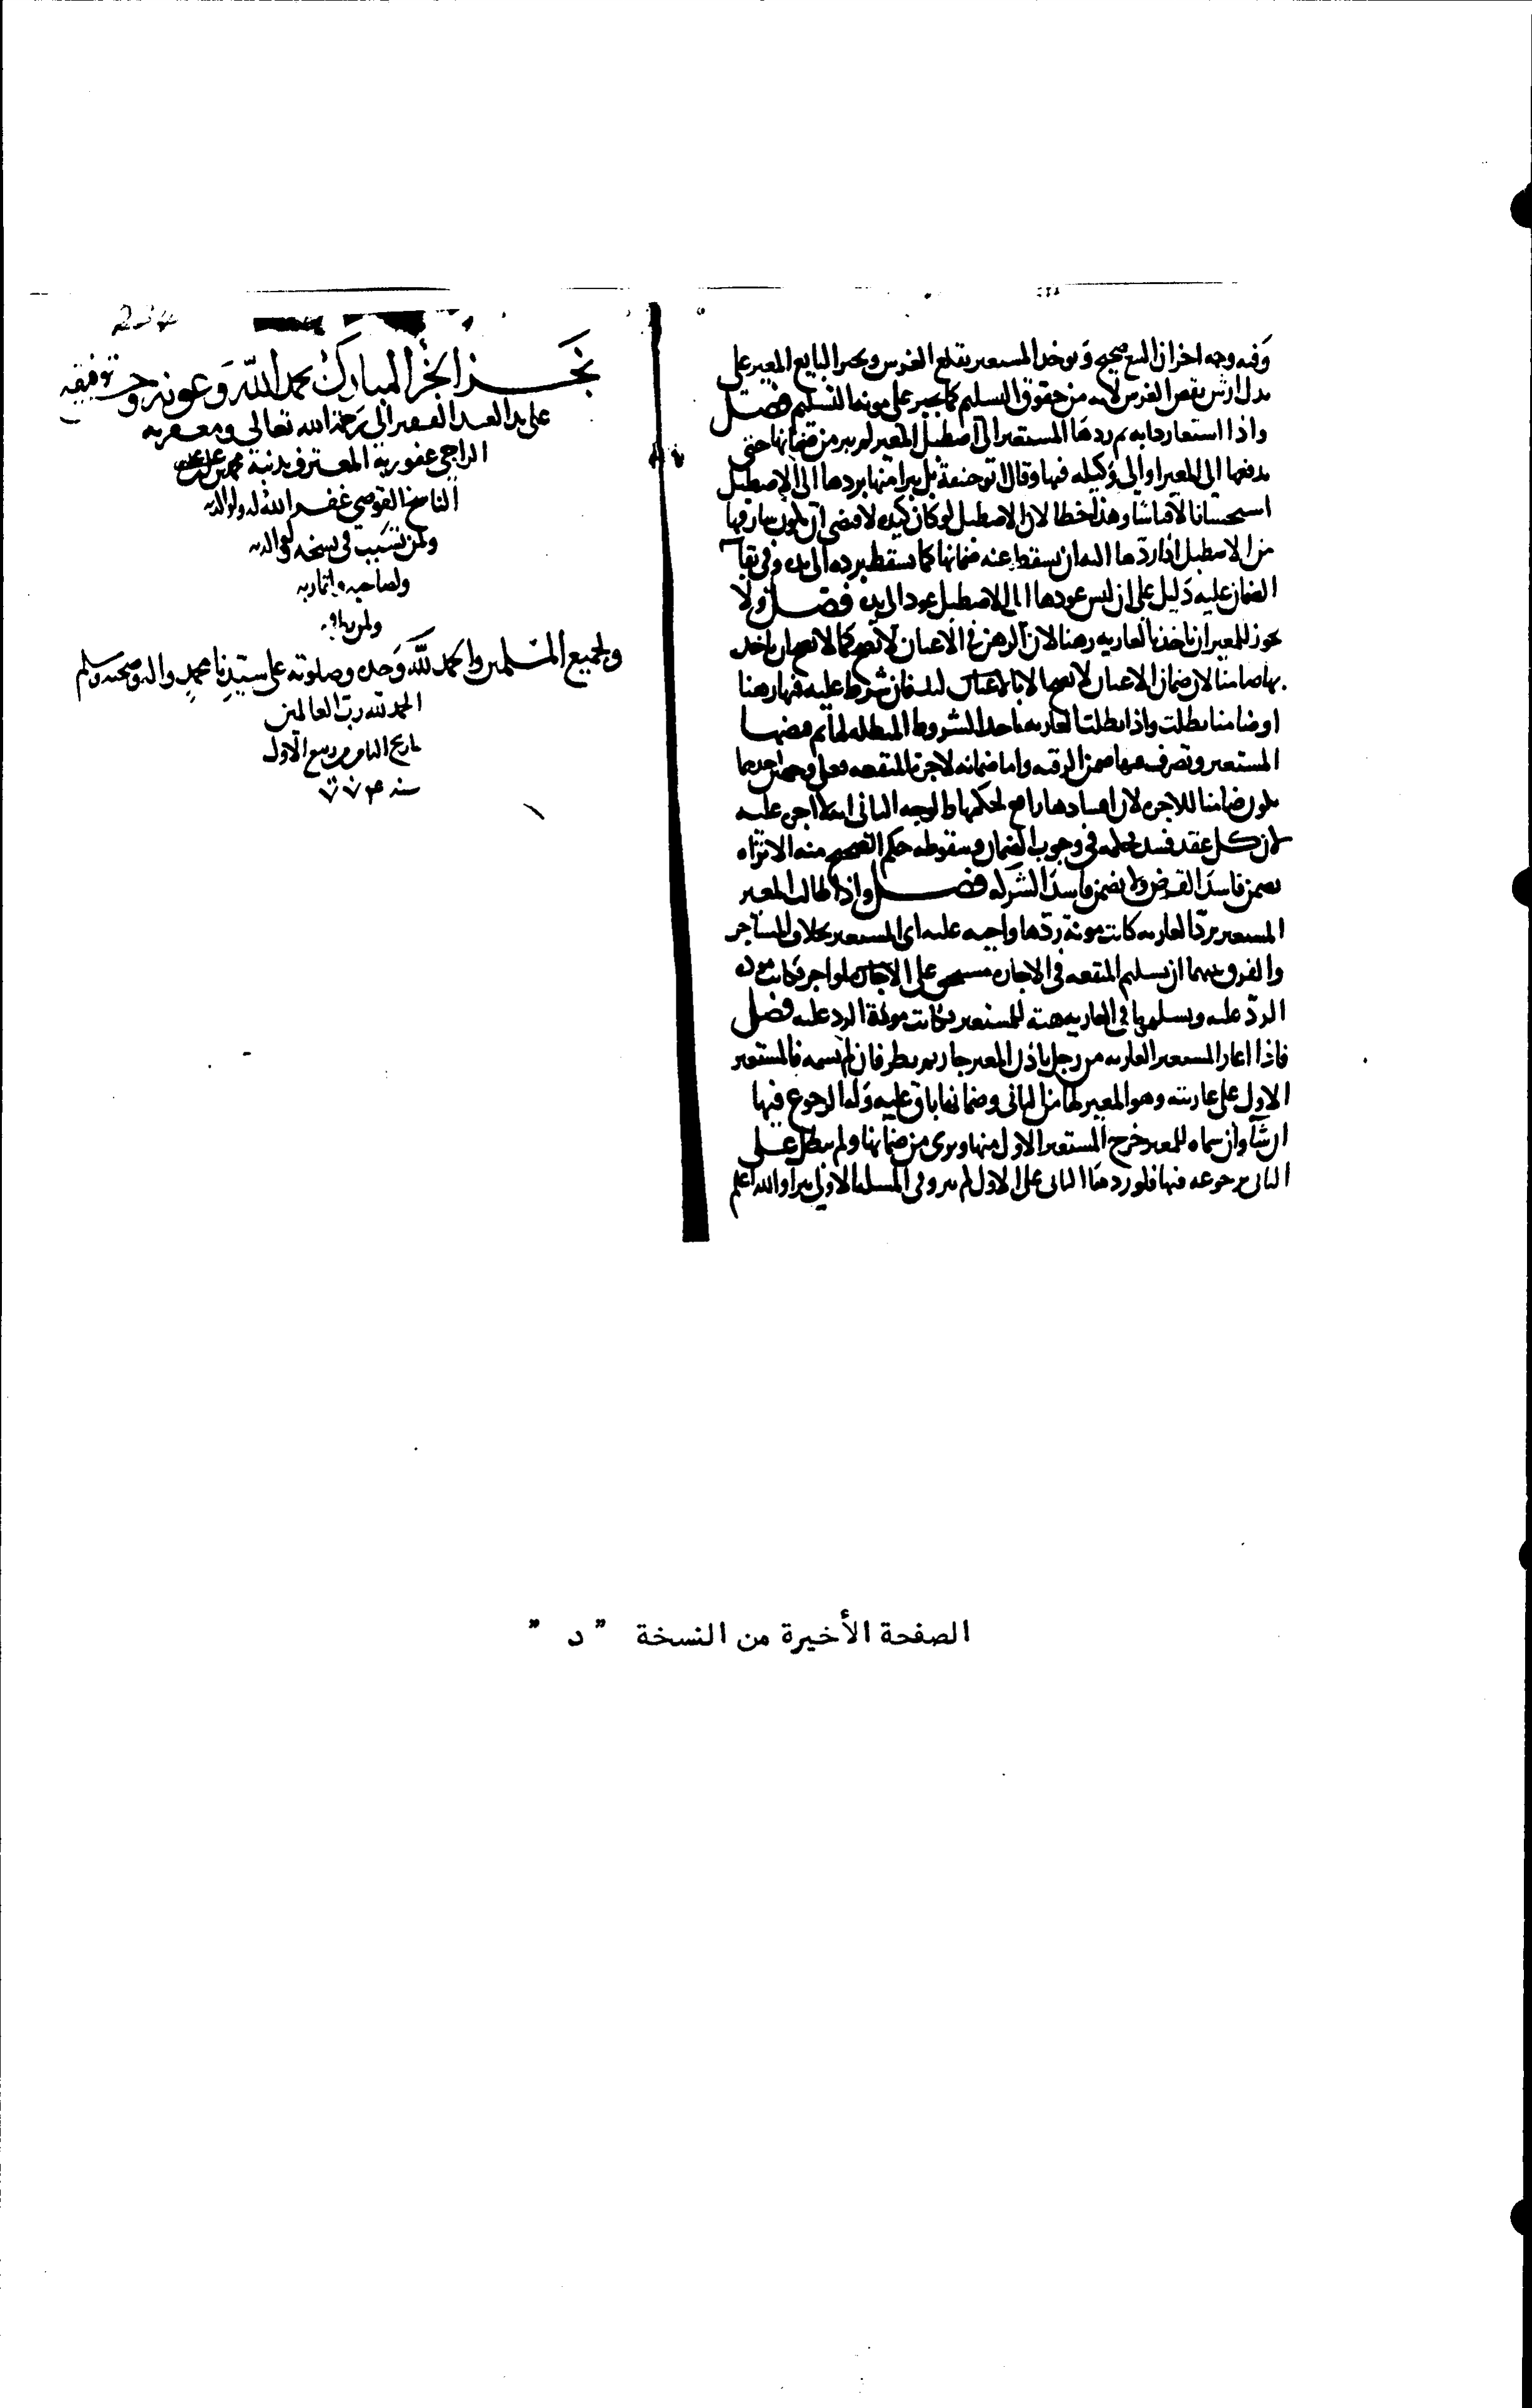 وفيه وجه اخر ان البيع صحيح ويوخذ المستعير بقلع الغرس ويجبر البايع المعير على
بدل ارش نقص الغرس لانه من حقوق التسليم كما يجبر على مونة التسليم فصل
واذا استعار دابه ثم ردها المستعير الى اصطبل المعير لم يبر من ضمانها حتى
يدفعها الى المعير او الى وكيله فيها وقال ابو حنيفة بل يبرا منها بردها الى الاصطبل
استحسانا لا قياسا وهذا خطا لان الاصطبل لو كان كيده لاقتضى ان يكون سارقها
من الاصطبل اذا ردها اليه ان يسقط عنه ضمانها كما يسقط برده الى يده وفي بقآ
الضمان عليه دليل على ان ليس عودها الى الاصطبل عود الى يده فصل ولا
يجوز للمعير ان ياخذ بالعاريه رهنا لان الرهن في الاعيان لا يصح كما لا يصح ان ياخذ
بها ضامنا لان ضمان الاعيان لا يصح فان شرط عليه فيها رهنا
او ضامنا بطلت واذا بطلت العاريه باحد الشروط المبطله لها ثم قبضها
المستعير وتصرف فيها ضمن الرقبه واما ضمانه لاجرة المنفعه فعلى وجهين احدهما
يكون ضامنا للاجره لان فسادها رافع لحكمها والوجه الثاني لا اجره عليه
لان كل عقد فسد فحكمه في وجوب الضمان وسقوطه حكم الصحيح منه الا تراه
يضمن فاسد القرض ولا يضمن فاسد الشركه فصل واذا طالب المعير
المستعير برد العاريه كانت مونة ردها واجبه عليه اي المستعير بخلاف المستاجر
والفرق بينهما ان تسليم المنفعه في الاجاره مستحق على الاجاره فكانت مونه
الرد عليه وتسليمها في العاريه هبة للمستعير فكانت مونة الرد عليه فصل
فاذا اعار المستعير العاريه من رجل باذن المعير جاز ثم ينظر فان لم يسمه فالمستعير
الاول على عاريته وهو المعير لها من الثاني وضمانها باق عليه وله الرجوع فيها
ان شآ وان سماه المعير خرج المستعير الاول منها وبرى من ضمانها ولم تبطل على
الثاني برجوعه فيها فلو ردها الثاني على الاول لم يبر وفي المسلة الاولى يبرا والله اعلم
نجز الجزء المبارك بحمد الله وعونه وحسن توفيقه
على يد العبد الفقير الى رحمة الله تعالى ومغفرته
الراجي عفو ربه المعترف بذنبه محمد بن
الناسخ القوصي غفر الله له ولوالديه
ولمن تسبب في نسخه ولوالديه
ولصاحبه واقاربه
ولمن
ولجميع المسلمين والحمد لله وحده وصلوته على سيدنا محمد واله وصحبه وسلم
الحمد لله رب العالمين
تاريخ الثامن من ربيع الاول
سنه
الصفحة الأخيرة من النسخة " د "